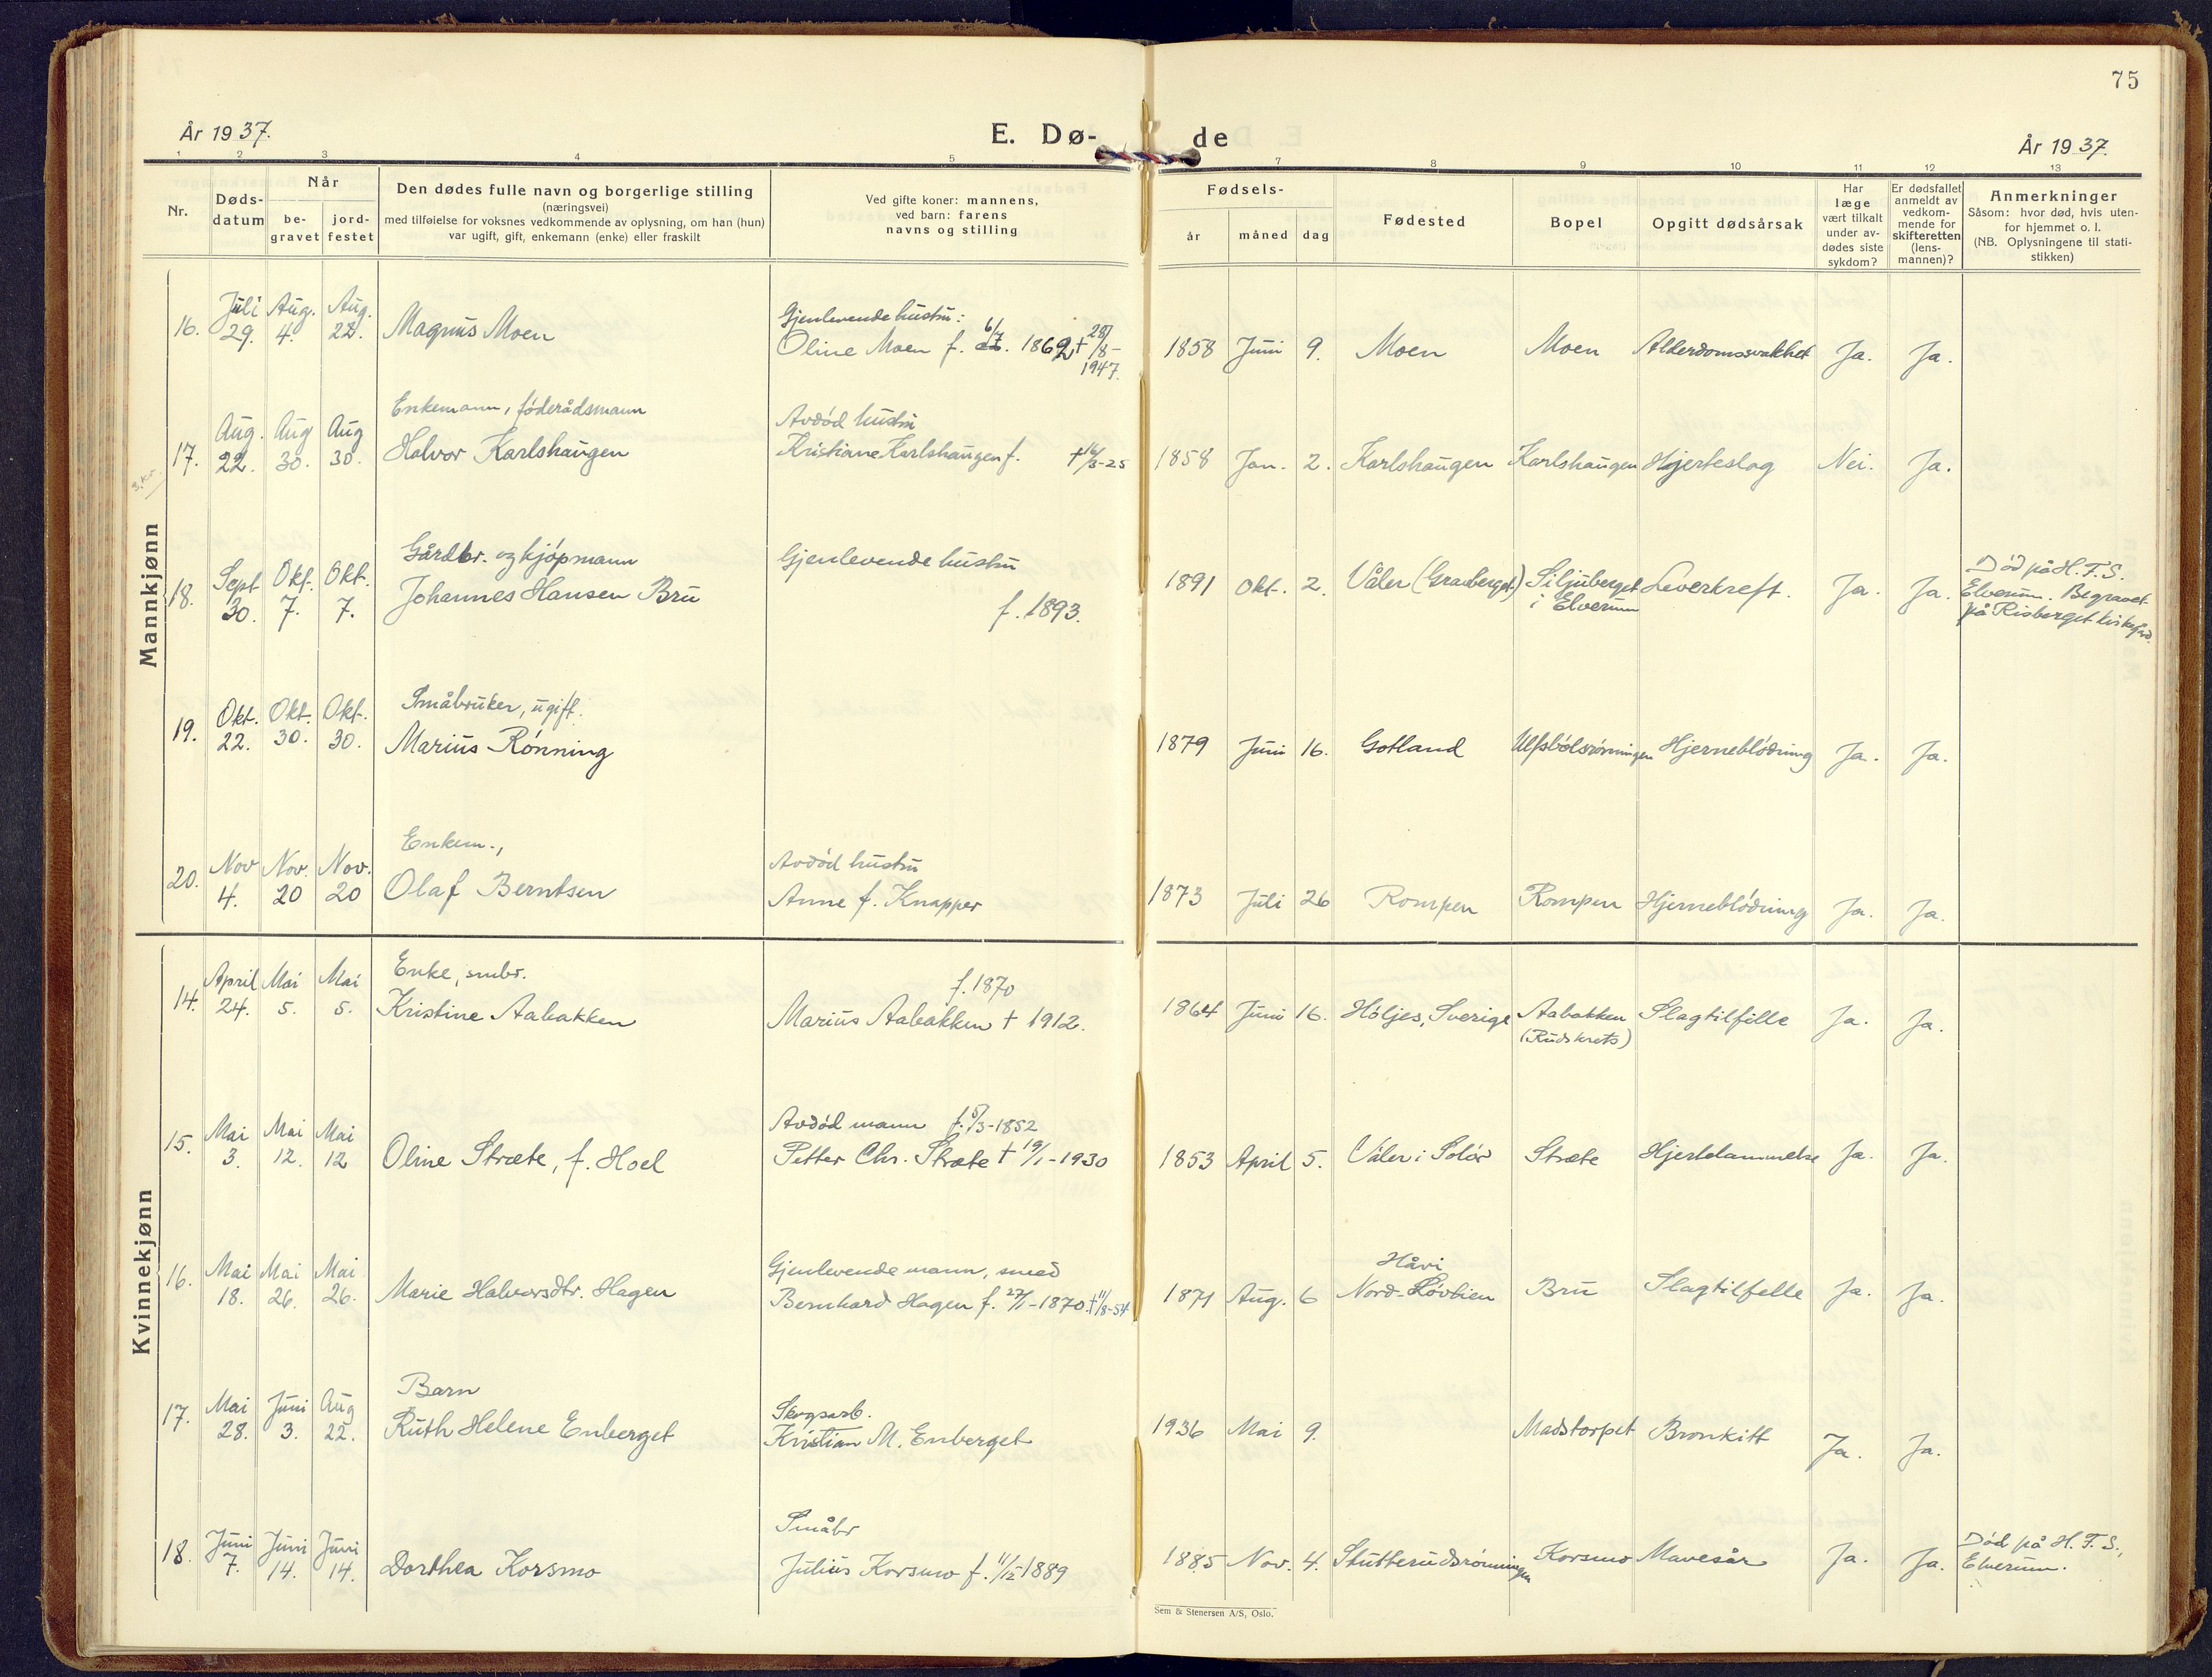 75
År 1937.
E. Dø-
de
År 1937.
1 2 3 4 5 7 8 9 10 11 12 13
Nr.
Døds-
datum
Når
be-
gravet
jord-
festet
Den dødes fulle navn og borgerlige stilling
(næringsvei)
med tilføielse for voksnes vedkommende av oplysning, om han (hun)
var ugift, gift, enkemann (enke) eller fraskilt
Ved gifte koner: mannens,
ved barn: farens
navns og stilling
Fødsels-
år
måned
dag
Fødested
Bopel
Opgitt dødsårsak
Har
læge
vært tilkalt
under av-
dødes siste
sykdom?
Er dødsfallet
anmeldt av
vedkom-
mende for
skifteretten
(lens-
mannen)?
Anmerkninger
Såsom: hvor død, hvis uten-
for hjemmet o. l.
(NB. Oplysningene til stati-
stikken)
Mannkjønn
16.
Juli
29.
Aug.
4.
Aug.
22.
Magnus Moen
Gjenlevende hustru:
Oline Moen f. 6/7 1862 † 28/8-
1947.
1858 Juni 9. Moen Moen Alderdomssvakhet Ja. Ja.
17.
Aug.
22.
Aug
30.
Aug
30.
Enkemann, föderådsmann
Halvor Karlshaugen
Avdöd hustru
Kristiane Karlshaugen f. † 16/3-25
1858 Jan. 2. Karlshaugen Karlshaugen Hjerteslag Nei. Ja.
18.
Sept
30.
Okt.
7.
Okt.
7.
Gårdbr. og kjöpmann
Johannes Hansen Bru
Gjenlevende hustru
f. 1893.
1891 Okt. 2. Våler (Gravberget) Siljuberget
i Elverum
Leverkreft. Ja. Ja.
Död på H. F. S.
Elverum. Begravet
på Risberget kirkegård.
19.
Okt.
22.
Okt.
30.
Okt.
30.
Småbruker, ugift.
Marius Rönning
1879 Juni 16. Gotland Ulfsbölsrönningen Hjerneblödning Ja. Ja.
20.
Nov
4.
Nov.
20
Nov.
20
Enkem.,
Olaf Berntsen
Avdöd hustru
Anne f. Knapper
1873 Juli 26 Rompen Rompen Hjerneblödning Ja. Ja.
Kvinnekjønn
14.
April
24.
Mai
5.
Mai
5.
Enke, smbr.
Kristine Aabakken
f. 1870
Marius Aabakken † 1912.
1864 Juni 16. Höljes, Sverige Aabakken
(Rudskrets)
Slagtilfelle Ja. Ja.
15.
Mai
3.
Mai
12.
Mai
12
Oline Stræte, f. Hoel
Avdöd mann f. 5/3-1852
Petter Chr. Stræte † 19/1-1930
1853 April 5. Våler i Solör Stræte Hjertelammelse Ja. Ja.
16.
Mai
18.
Mai
26.
Mai
26.
Marie Halvorsdtr. Hagen
Gjenlevende mann, smed
Bernhard Hagen f. 27/1-1870. † 11/8-54
1871 Aug. 6 Håvi
Nord-Lövlien Bru Slagtilfelle Ja. Ja.
17.
Mai
28.
Juni
3.
Aug
22.
Barn
Ruth Helene Enberget
Skogsarb.
Kristian M. Enberget
1936 Mai 9. Madstorpet Bronkitt Ja. Ja.
18.
Juni
7.
Juni
14.
Juni
14.
Dorthea Korsmo
Småbr
Julius Korsmo f. 11/12 1889
1885 Nov. 4. Stutterudsrönningen Korsmo Mavesår Ja. Ja.
Död på H. F. S.,
Elverum.
Sem & Stenersen A/S, Oslo.